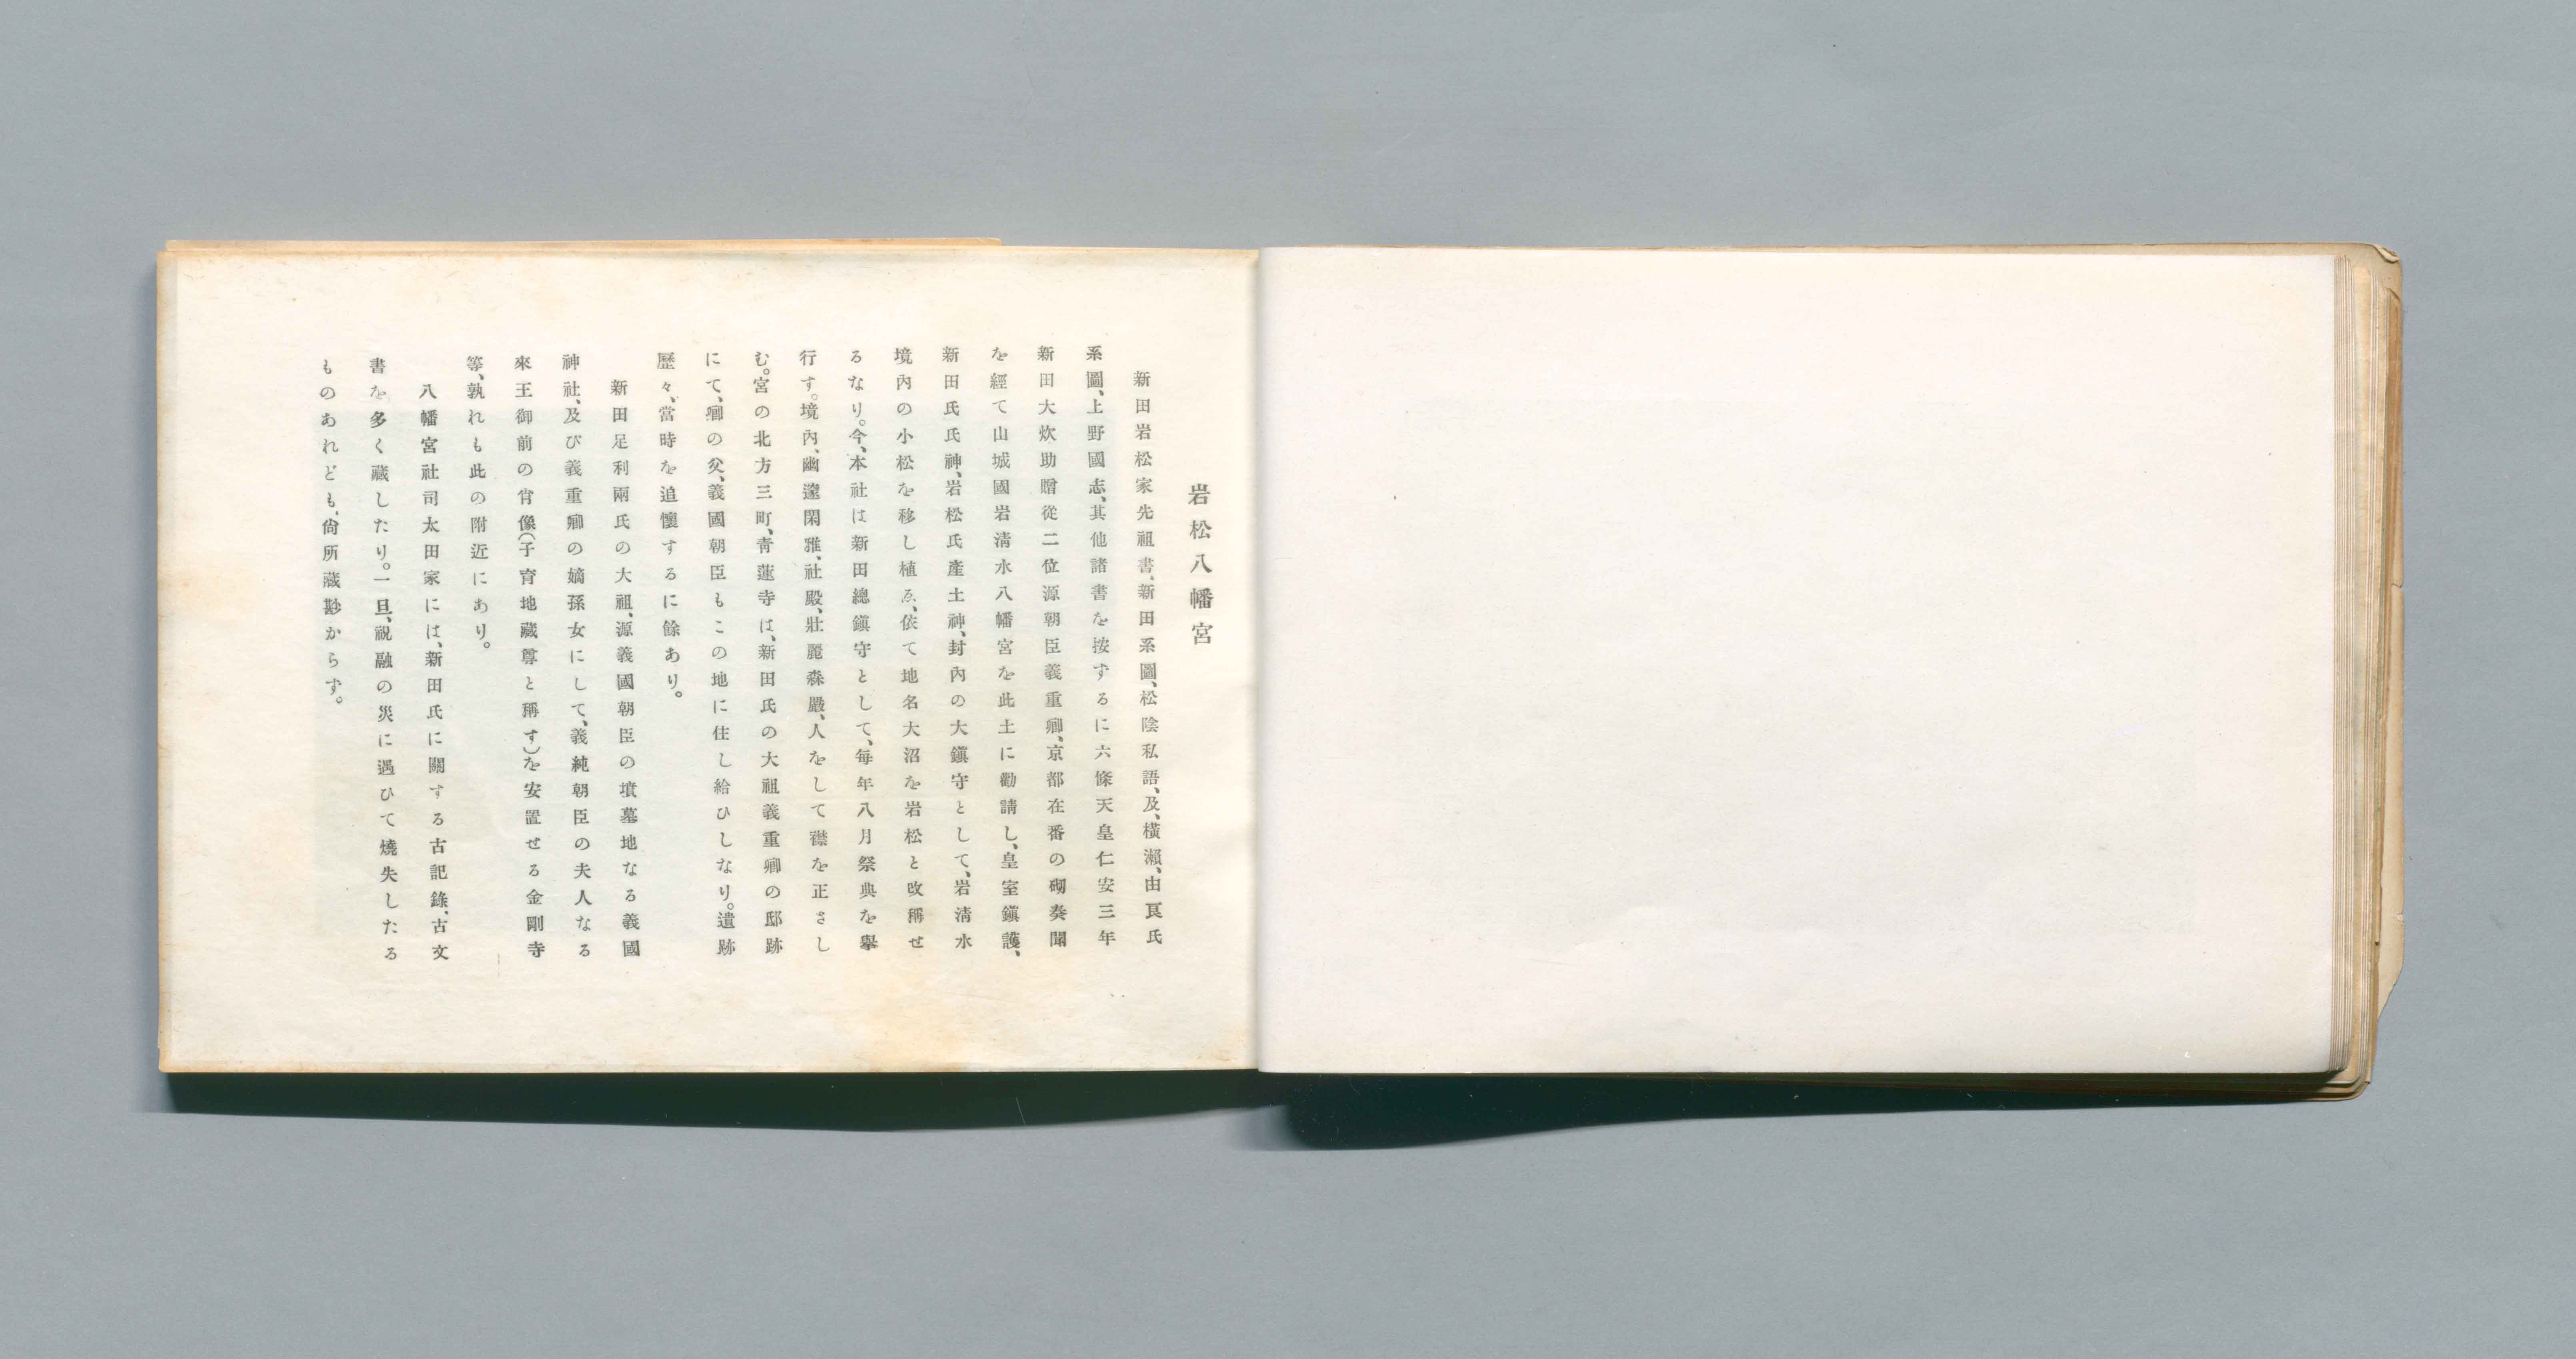 岩松八幡宮
新田岩松家先祖書、新田系圖、松陰私語、及、橫瀨、由良氏
系圖、上野國志、其他諸書を按ずるに六條天皇仁安三年
新田大炊助贈從二位源朝臣義重卿、京都在番の砌奏聞
を經て山城國岩淸水八幡宮を此土に勸請し、皇室鎭護、
新田氏氏神、岩松氏產土神、封內の大鎭守として、岩淸水
境內の小松を移し植ゑ、依て地名大沼を岩松と改稱せ
るなり。今、本社は新田總鎭守として、每年八月祭典を擧
行す。境內、幽邃閑雅、社殿、壯麗森嚴、人をして襟を正さし
む。宮の北方三町、靑蓮寺は、新田氏の大祖義重卿の邸跡
にて、卿の父、義國朝臣もこの地に住し給ひしなり。遺跡
歷々、當時を追懷するに餘あり。
新田足利兩氏の大祖、源義國朝臣の墳墓地なる義國
神社、及び義重卿の嫡孫女にして、義純朝臣の夫人なる
來王御前の肖像(子育地藏尊と稱す)を安置せる金剛寺
等、孰れも此の附近にあり。
八幡宮社司太田家には、新田氏に關する古記錄、古文
書を多く藏したり。一旦、祝融の災に遇ひて燒失したる
ものあれども、尙所藏尠からず。